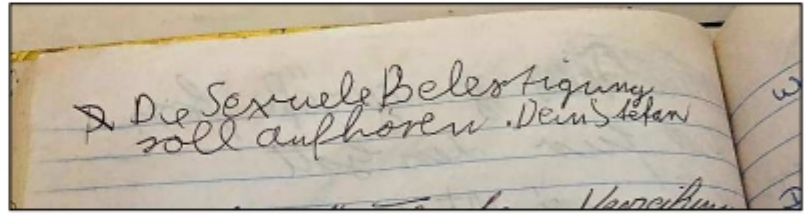 Die Sexuele Belestigung
soll aufhören. Dein Stefan